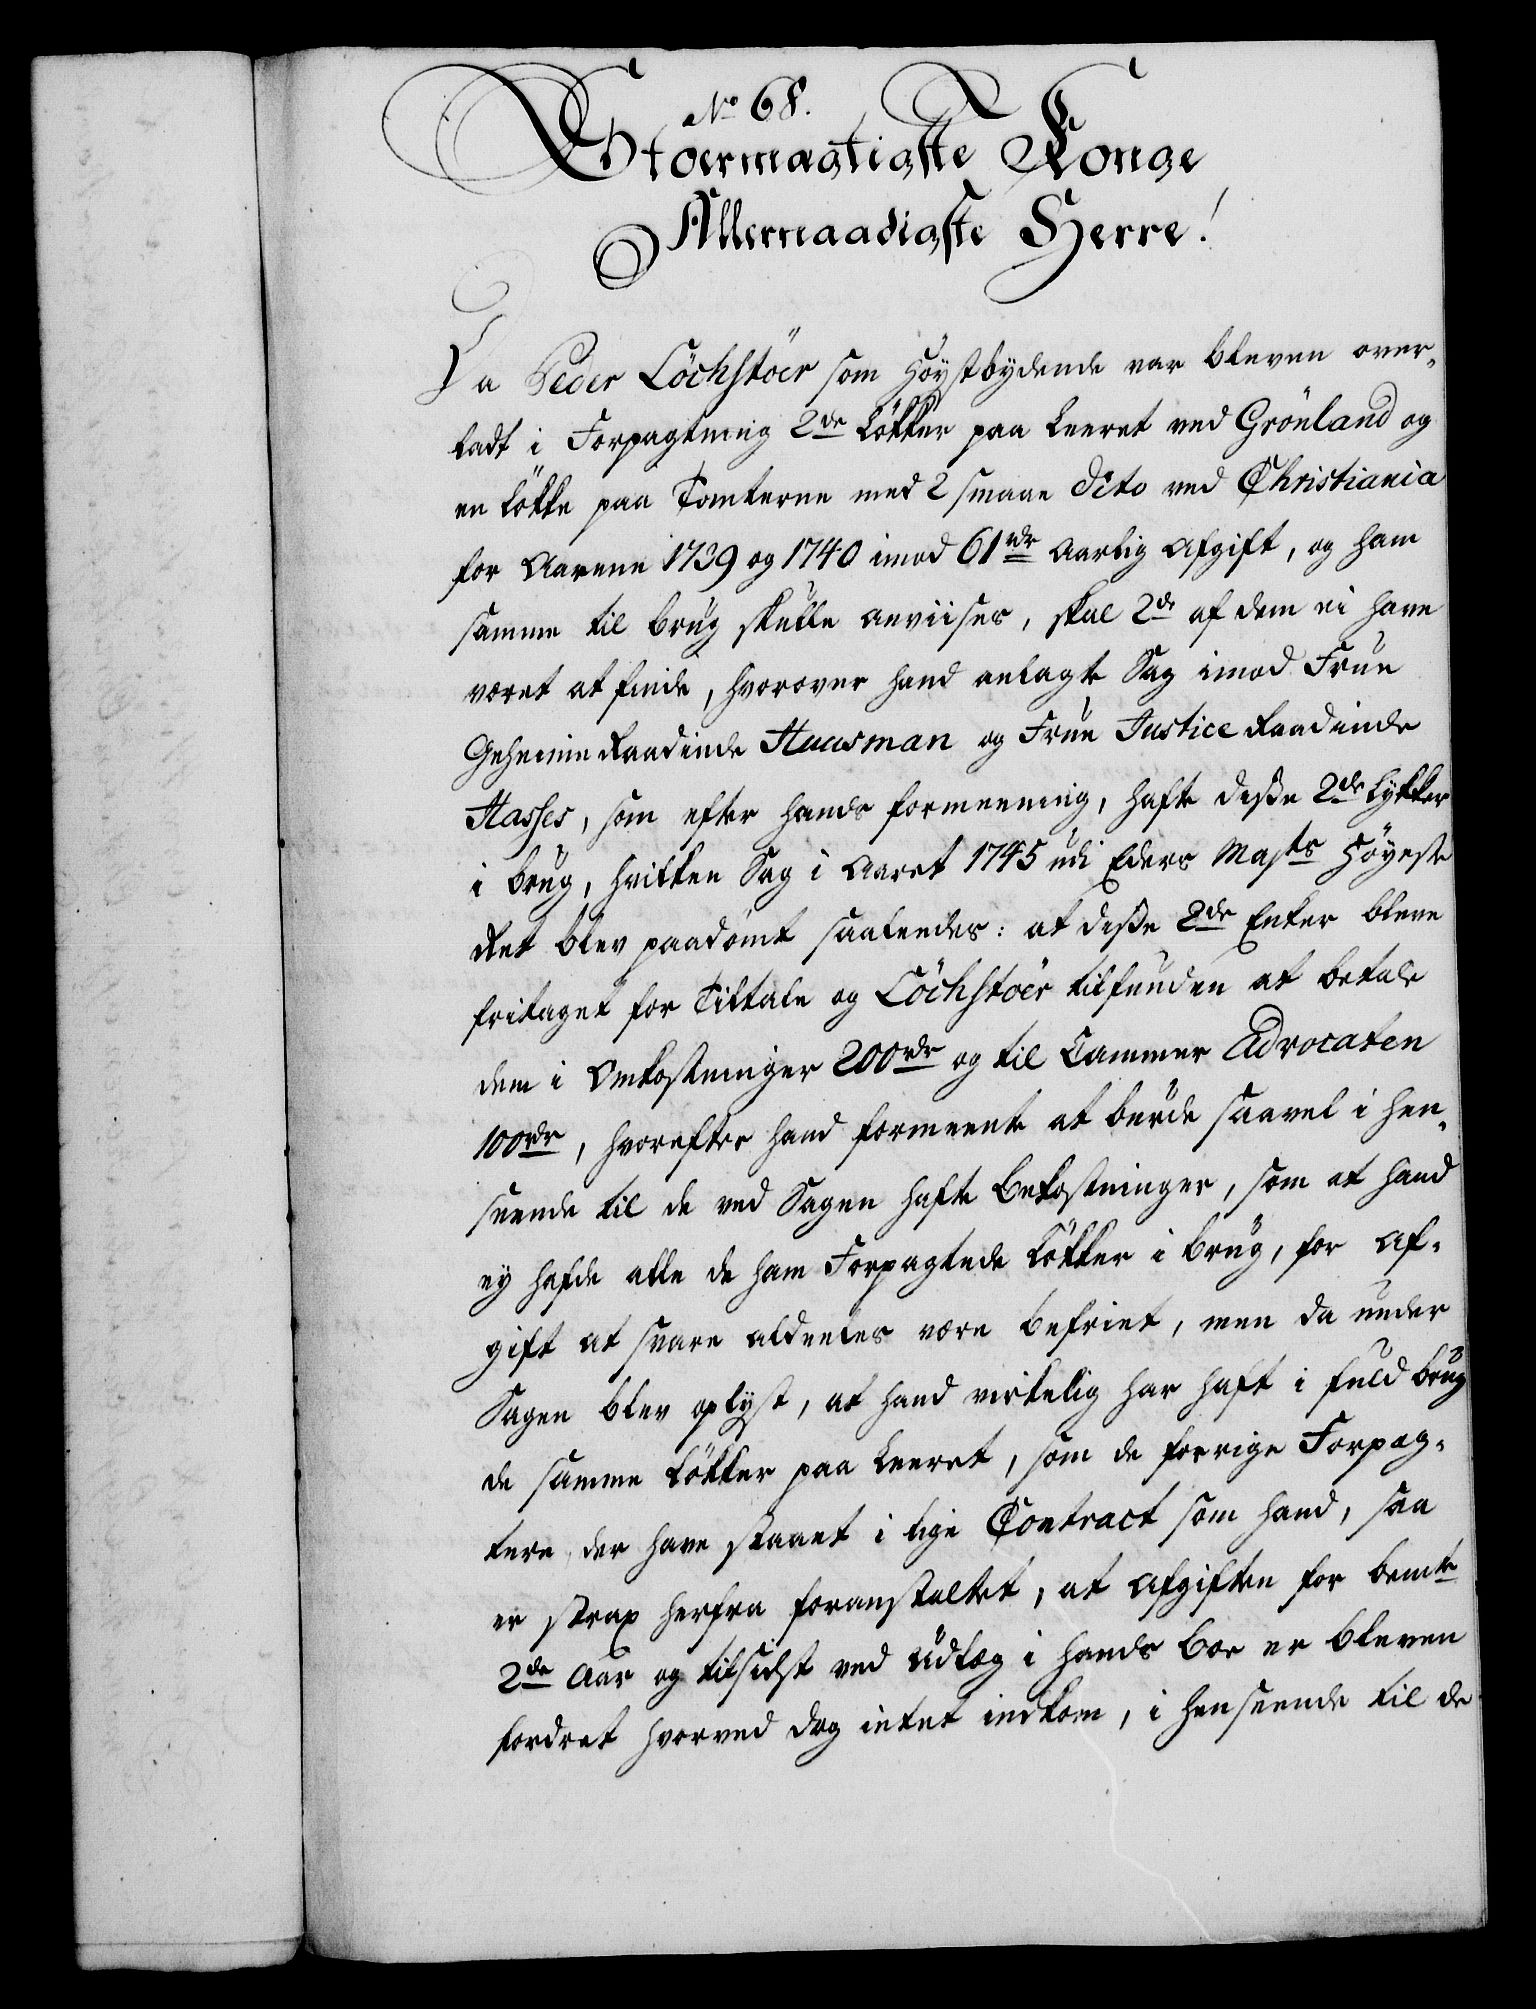 No 68.
Stoermægtigste Konge
Allernaadigste Herre!
Da Peder Löchstöer som höystbydende var bleven over-
ladt i Forpagtning 2de Løkker paa Leeret ved Grönland og
en Løkke paa Tomterne med 2 smaae dito ved Christiania
for Aarene 1739 og 1740 imod 61 rdr aarlig Afgift, og ham
samme til brug skulle anviises, skal 2de af dem ei have
været at finde, hvorover hand anlagte Sag imod Frue
Geheime Raadinde Hausman og Frue Justice Raadinde
Hasses, som efter hands formeening, hafte disse 2de Lykker
i brug, hvilken Sag i Aaret 1745 udi Eders Majts Höyeste
Ret blev paadömt saaleedes: at disse 2de Enker bleve
fritaget for Tiltale og Löchstöer tilfunden at betale
dem i Omkostninger 200 rdr og til Cammer Advocaten
100 rdr, hvorefter hand formeente at burde saavel i hen-
seende til de ved Sagen hafte Bekostninger, som at hand
ey hafde alle de ham Forpagtede Løkker i brug, for Af-
gift at svare aldeeles være befriet, men da under
Sagen blev oplyst, at hand virkelig har haft i fuld brug
de samme Løkker paa Leeret, som de forrige Forpag-
tere, der have staaet i lige Contract som hand, saa
er strax herfra foranstaltet, at Afgiften for bemte
2de Aar og tilsidst ved Udlæg i hands Boe er bleven
fordret hvorved dog intet indkom, i henseende til de